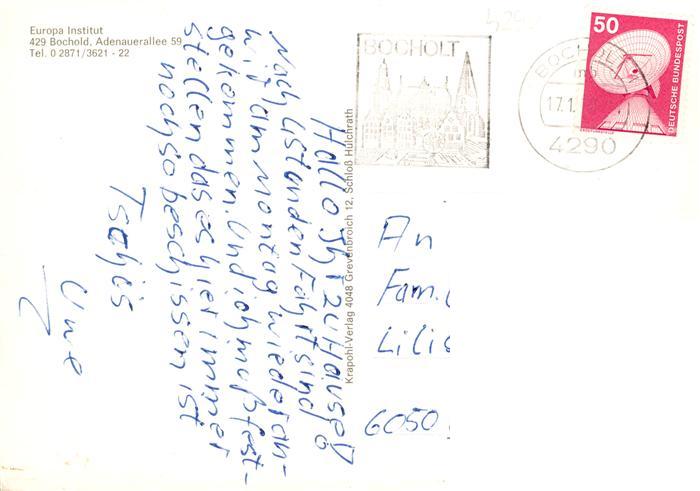 Europa Institut
429 Bochold, Adenauerallee 59
Tel. 0 2871/3621 - 22
Hallo Ihr zuHause
Nach 6 Standen Fahrt sind
wir am montag wieder an-
gekommen. Und ich muß fest-
stellen das es hier immer
noch so beschissen ist
Tschüs
Uwe
Krapohl-Verlag 4048 Grevenbroich 12, Schloß Hülchrath
BOCHOLT
BOCHOLT
17.1.
4290
50
DEUTSCHE BUNDESPOST
An
Fam.
Lilis
6050